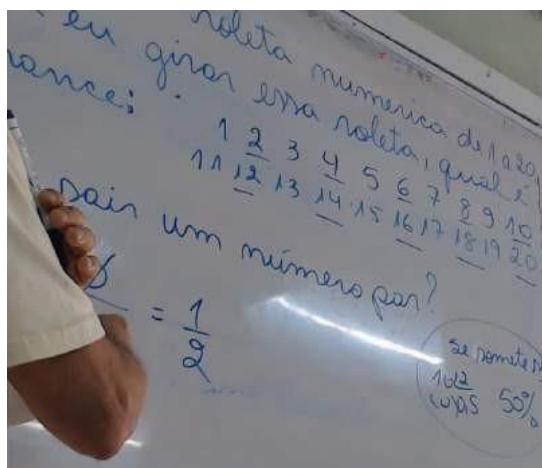 eu
roleta numerica de 1 a 20,
girar essa roleta, qual é
hance:
1 2 3 4 5 6 7 8 9 10
11 12 13 14 15 16 17 18 19 20
sair um número par?
= 1
2
se somete
50%